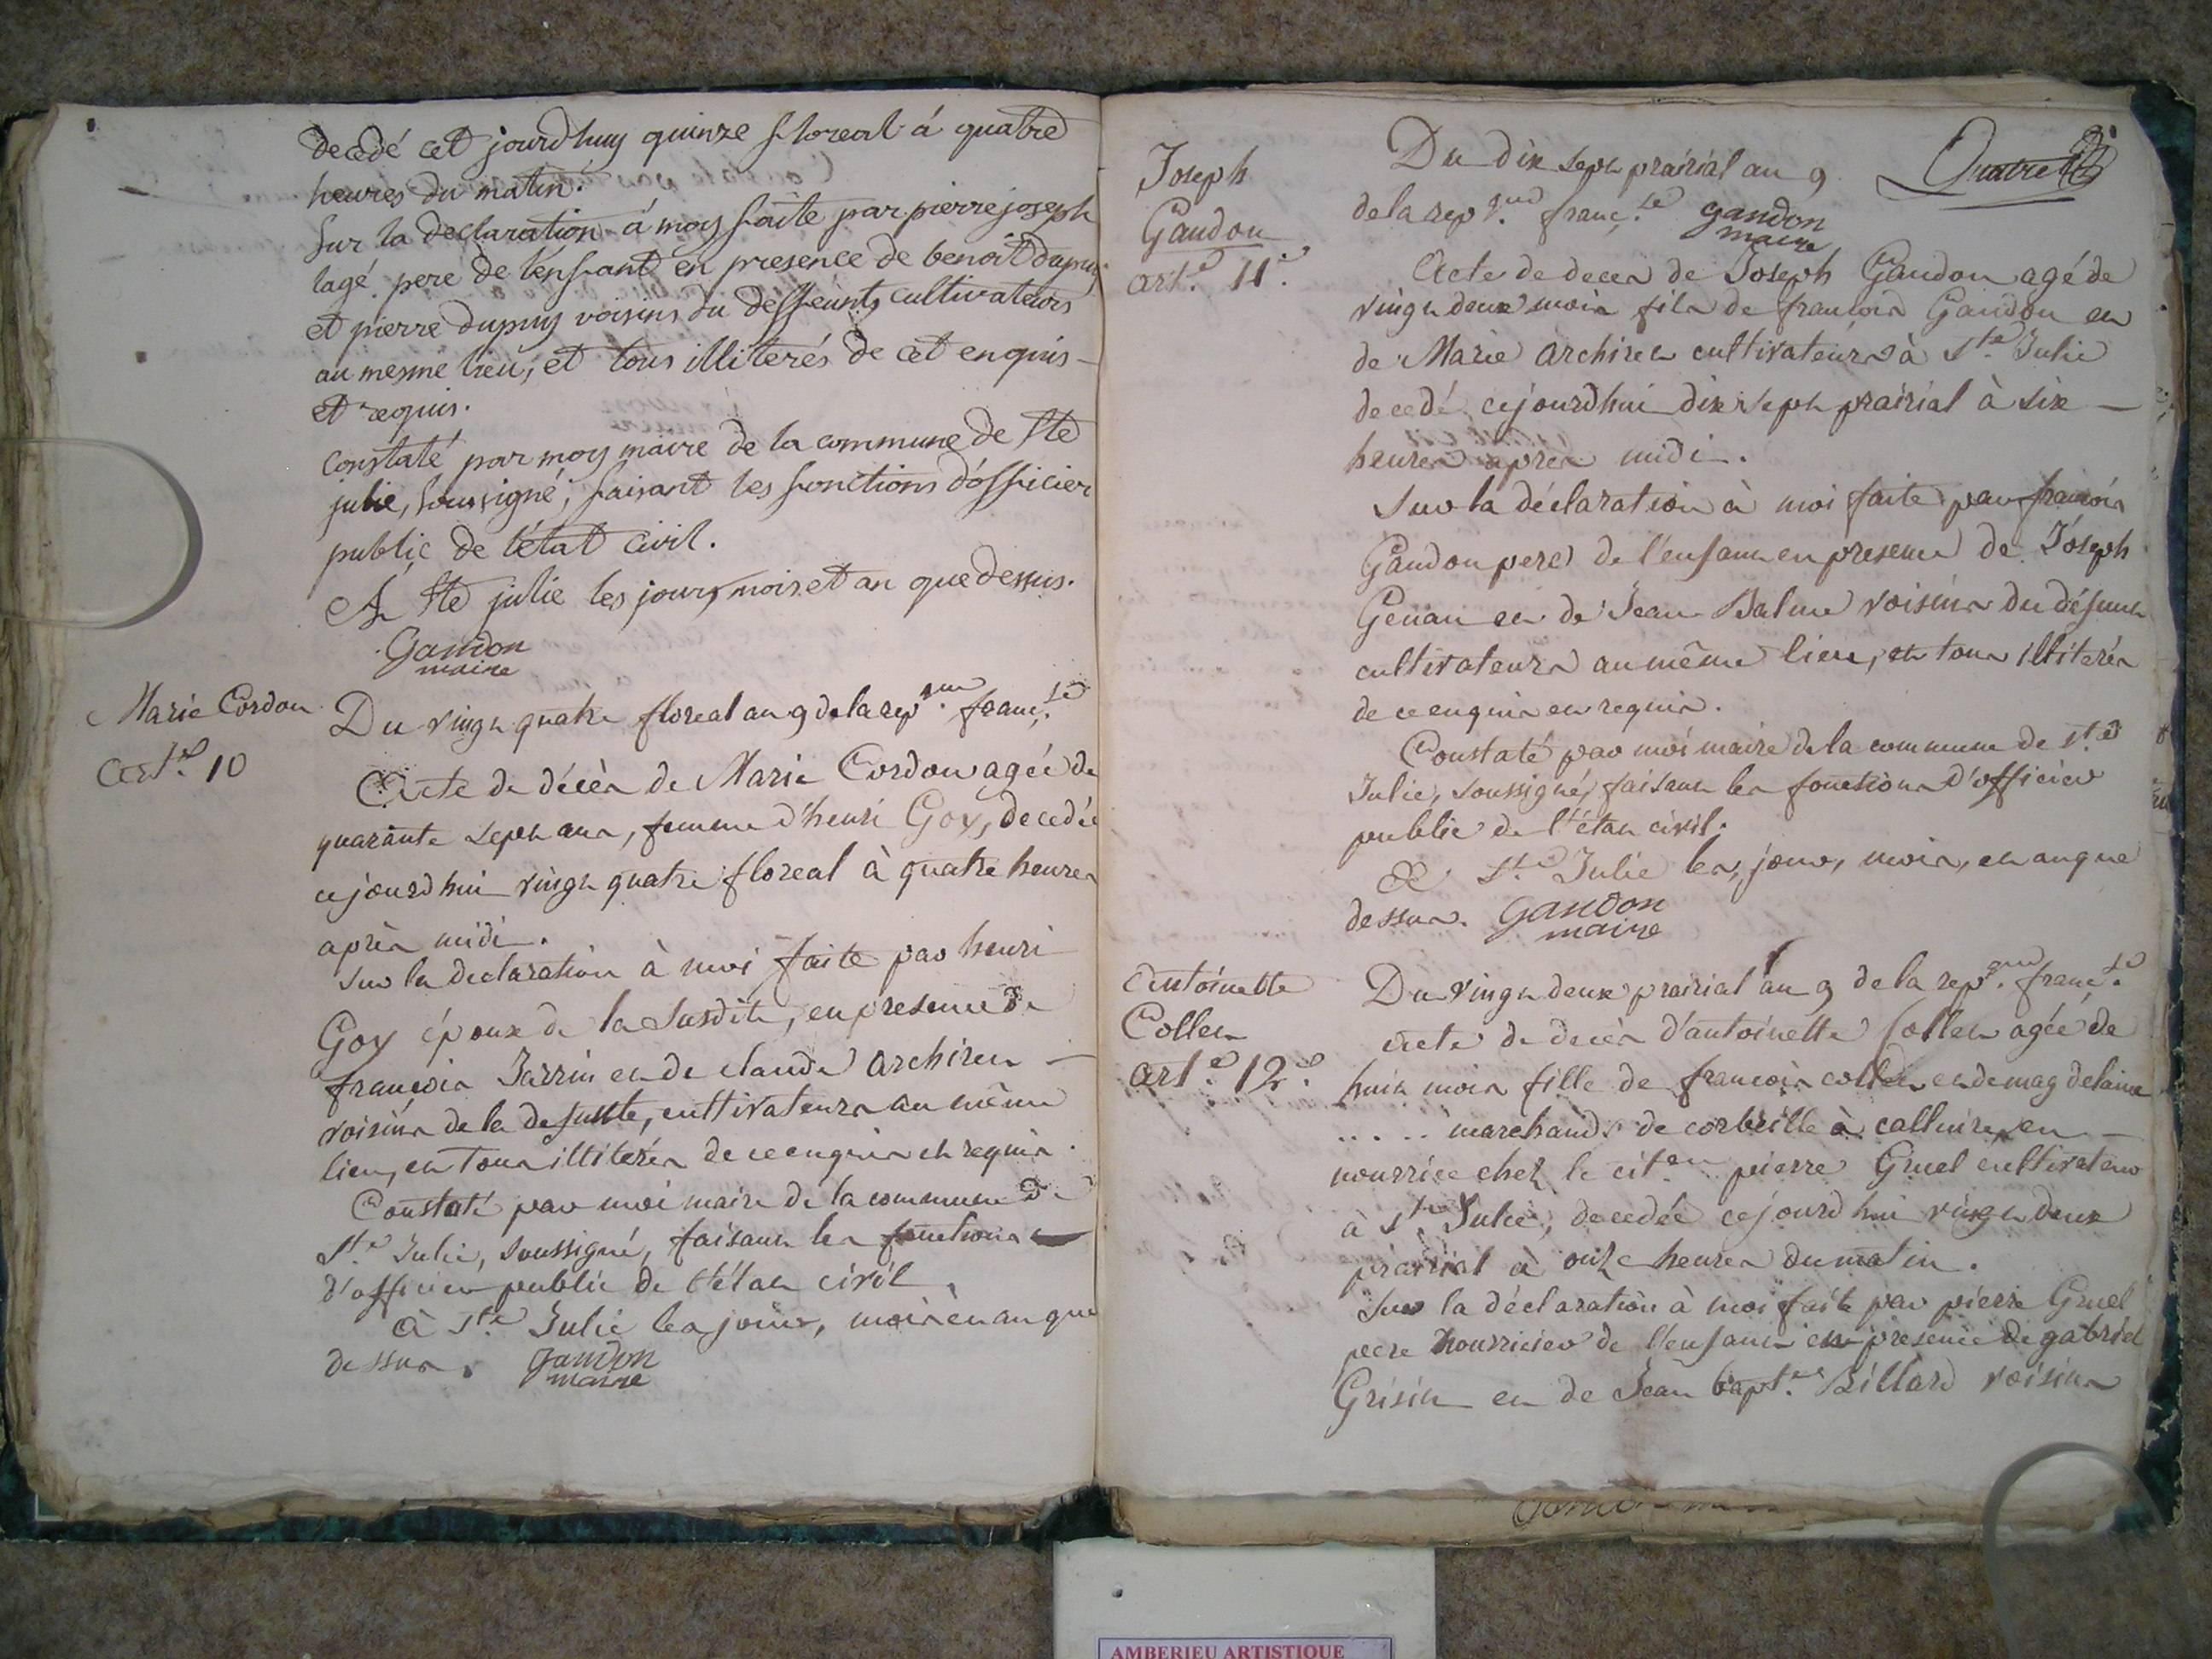 decedé cet jourdhuy quinze floreal á quatre
heures du matin.
sur la declaration á moy faite par pierre joseph
lagé pere de l'enfant en presence de benoit dupuy
et pierre dupuy voisins du deffeunt, cultivateurs
au mesme lieu, et tous illiterés de cet enquis
et requis.
constaté par moy maire de la commune de Ste
julie, soussigné, faisant les fonctions d'officier
public de l'état civil.
A Ste julie les jour, mois et an que dessus.
Gandon
maire
Marie Cordon
art.e 10
Du vingt quatre floreal an 9 de la rep.que franç.se
Acte de décès de Marie Cordon agée de
quarante sept ans, femme d'henri Goy, decedée
cejourd'hui vingt quatre floreal à quatre heures
après midi.
Sur la declaration à moi faite par henri
Goy époux de la susdite, en presence de
françois Jarrin et de claude archiret
voisins de la defunte, cultivateurs au même
lieu, et tous illiterés de ce enquis et requis.
Constaté par moi maire de la commune de
Ste Julie, soussigné, faisant les fonctions
d'officier public de l'état civil.
à Ste Julie les jour, mois et an que
dessus. Gandon
maire
Joseph
Gandon
art.e 11.e
Quatre
Du dix sept prairial an 9
de la rep.que franç.se Gandon
maire
Acte de deces de Joseph Gandon agé de
vingt deux mois fils de francois Gandon et
de Marie archiret cultivateurs à Ste Julie
decedé cejourdhui dix sept prairial à six
heures après midi.
Sur la déclaration à moi faite par francois
Gandon pere de l'enfant en presence de Joseph
Genan et de Jean Balme voisins du défunt
cultivateurs au même lieu, et tous illiterés
de ce enquis et requis.
Constaté par moi maire de la commune de Ste
Julie, soussigné, faisant les fonctions d'officier
public de l'état civil.
A Ste Julie les, jour, mois, et an que
dessus. Gandon
maire
Antoinette
Collet
art.e 12.e
Du vingt deux prairial an 9 de la rep.que franç.se
acte de decès d'antoinette Collet agée de
huit mois fille de francois collet et de magdelaine
..... marchands de corbeille à calluire, en
nourrice chez le cit.en pierre Gruel cultivateur
à Ste Julie, decedée cejourdhui vingt deux
prairial à onze heures du matin.
Sur la déclaration à moi faite par pierre Gruel
pere nourricier de l'enfant en presence de gabriel
Grisin et de Jean bapt.e Billard voisins
AMBERIEU ARTISTIQUE